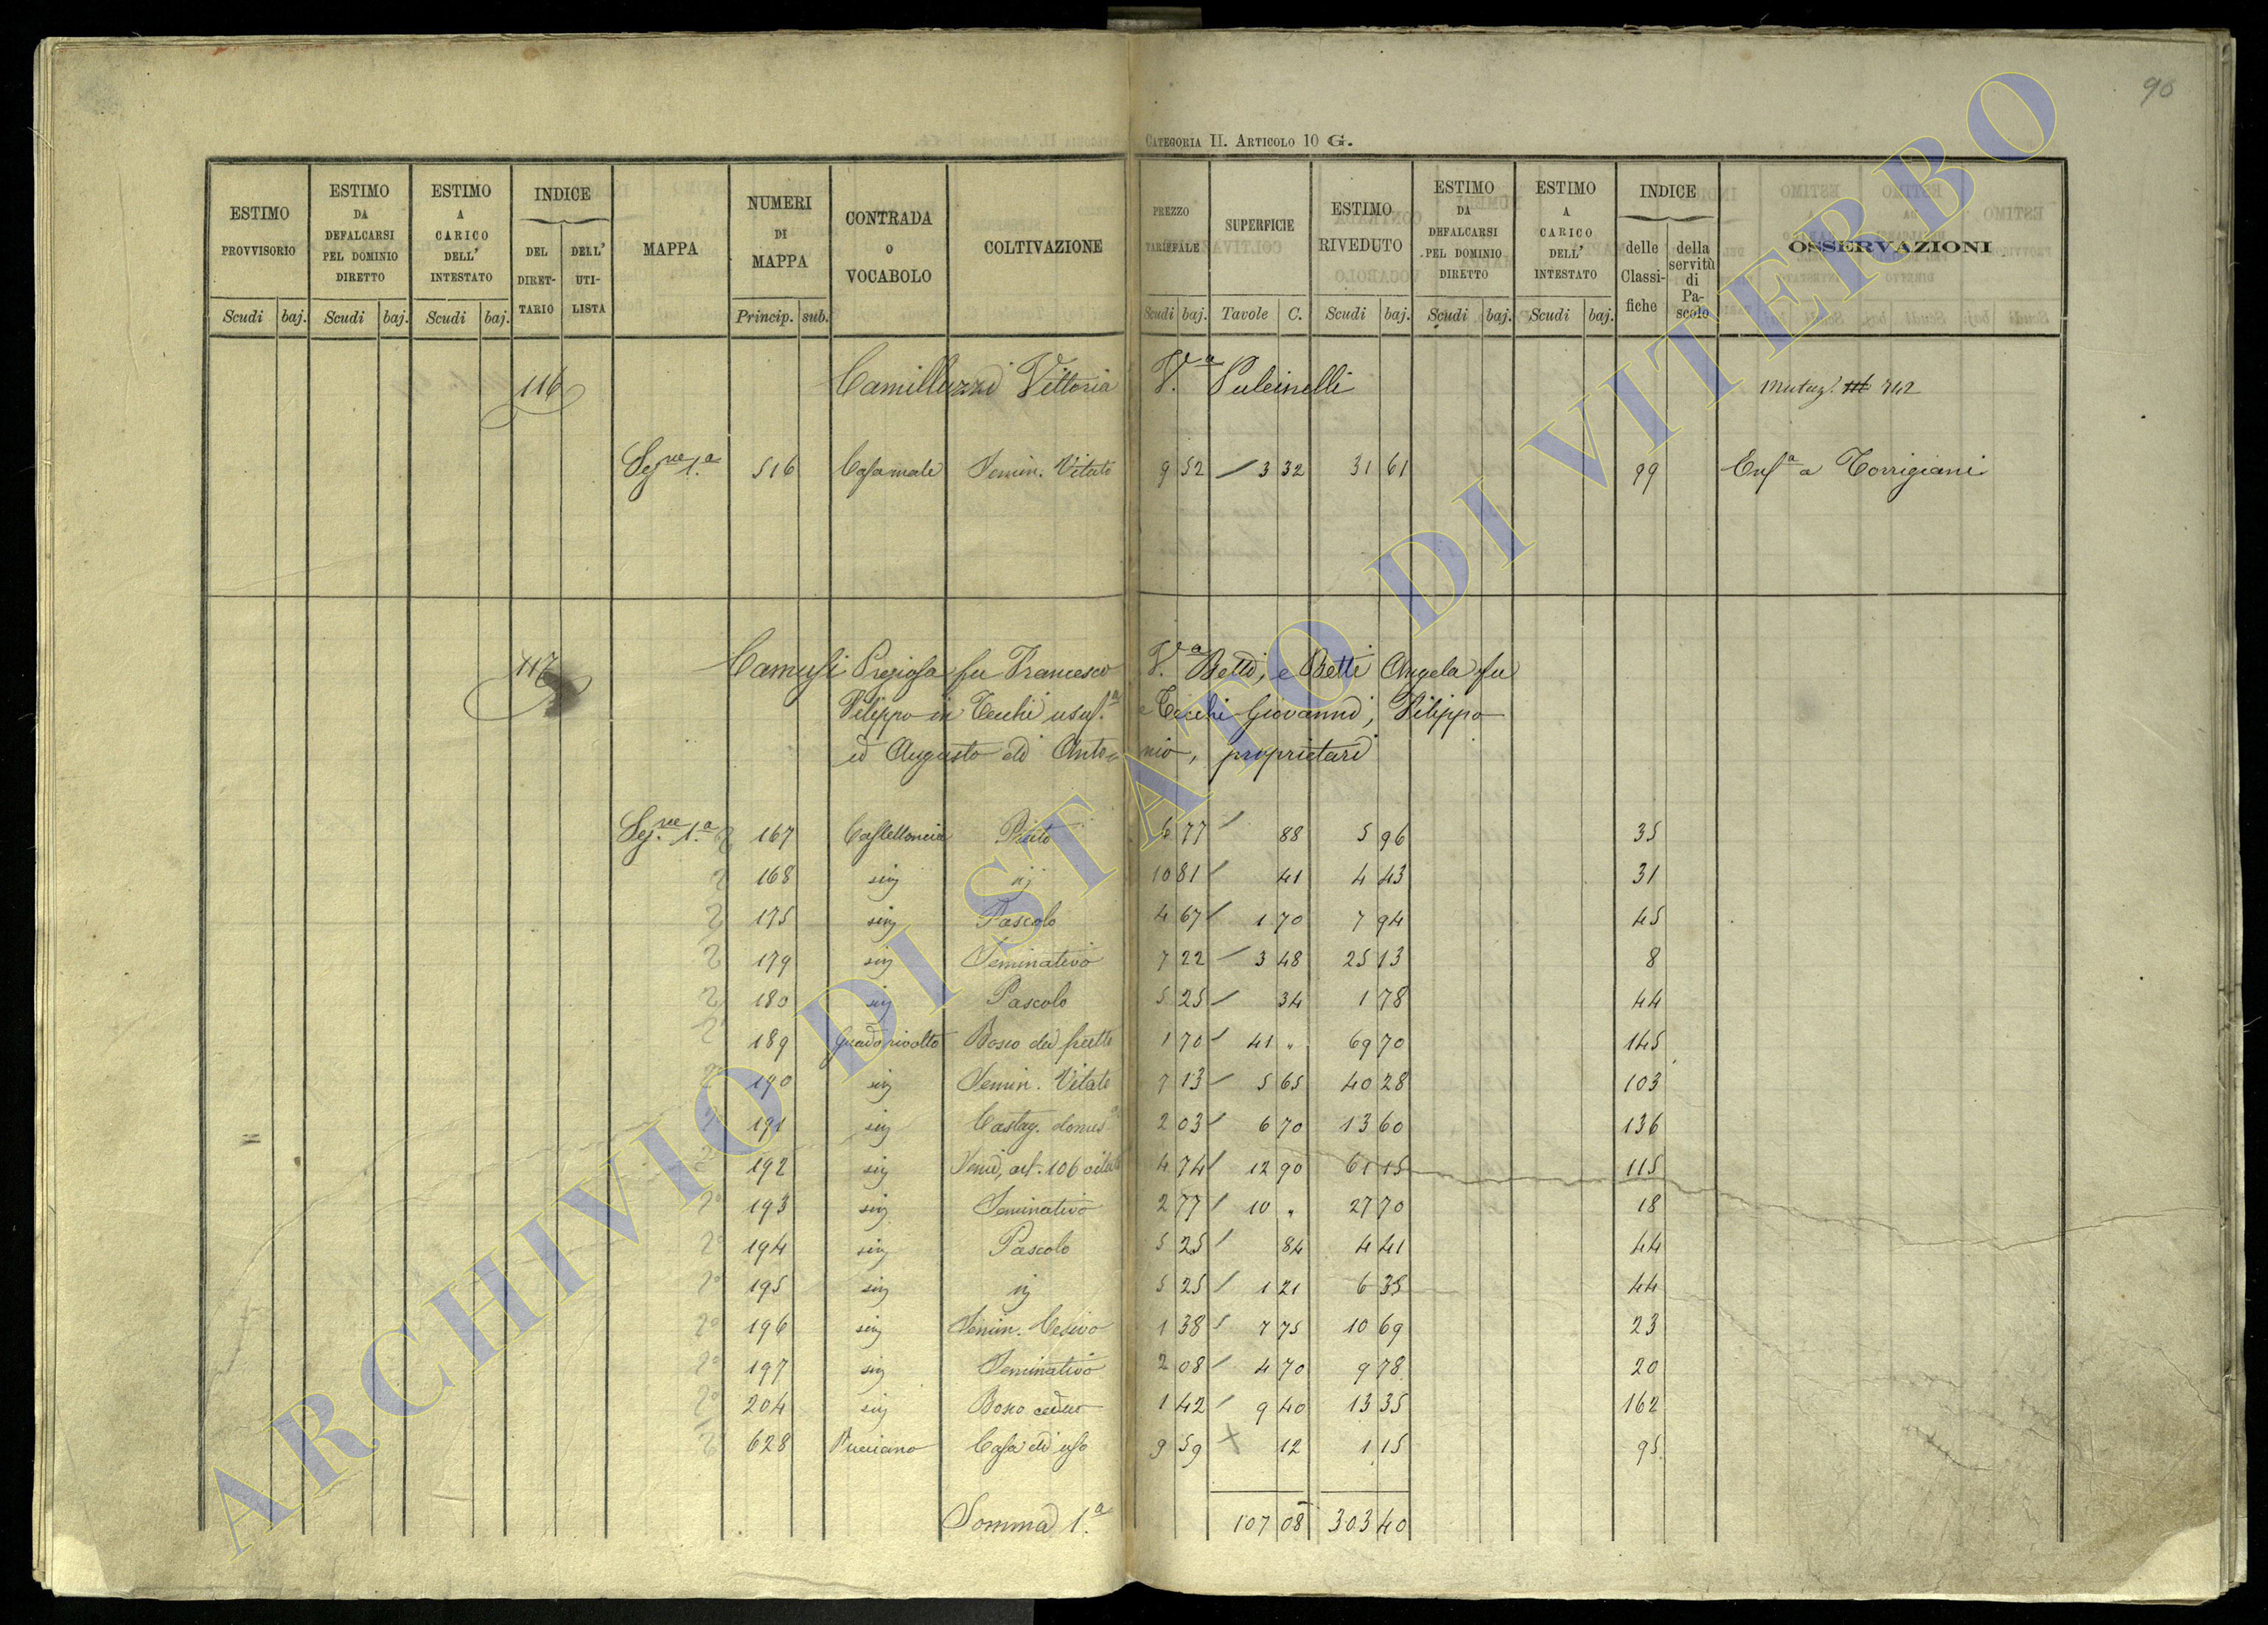 90
CATEGORIA II. ARTICOLO 10 G.
ESTIMO PROVVISORIO Scudi baj. ESTIMO DA DEFALCARSI PEL DOMINIO DIRETTO Scudi baj. ESTIMO A CARICO DELL' INTESTATO Scudi baj. INDICE DEL DIRET-TARIO DELL' UTI-LISTA MAPPA NUMERI DI MAPPA Princip. sub. CONTRADA o VOCABOLO COLTIVAZIONE PREZZO TARIFFALE Scudi baj. SUPERFICIE Tavole C. ESTIMO RIVEDUTO Scudi baj. ESTIMO DA DEFALCARSI PEL DOMINIO DIRETTO Scudi baj. ESTIMO A CARICO DELL' INTESTATO Scudi baj. INDICE delle Classi-fiche della servitù di Pa-scolo OSSERVAZIONI
116 Camilluzzi Vittoria V.a Pulcinelli Mutaz. 742
Sez.ne 1.a 516 Casamale Semin. Vitato 9 52 3 32 31 61 99 Enf.a a Torrigiani
117 Camusi Pregiosa fu Francesco V.a Betti, e Betti Angela fu
Filippo in Cecchi usuf.a e Cecchi Giovanni, Filippo
ed Augusto di Anto= nio, proprietari
Sez.ne 1.a 2 167 Castelloncia Prato 6 77 88 5 96 35
2 168 sij ij 10 81 41 4 43 31
2 175 sij Pascolo 4 67 1 70 7 94 45
2 179 sij Seminativo 7 22 3 48 25 13 8
2 180 sij Pascolo 5 25 34 1 78 44
2 189 Guado rivolto Bosco da frutto 1 70 41 " 69 70 145
2 190 sij Semin. Vitato 7 13 5 65 40 28 103
2 191 sij Castag. domes. 2 03 6 70 13 60 136
2 192 sij Semi, art. 106 vitato 4 74 12 90 61 15 115
2° 193 sij Seminativo 2 77 10 " 27 70 18
2° 194 sij Pascolo 5 25 84 4 41 44
2° 195 sij ij 5 25 1 21 6 35 44
2° 196 sij Semin. Cesivo 1 38 7 75 10 69 23
2° 197 sij Seminativo 2 08 4 70 9 78 20
2° 204 sij Bosco ceduo 1 42 9 40 13 35 162
2 628 Pucciano Casa di uso 9 59 12 1 15 95
Somma 1.a 107 08 303 40
ARCHIVIO DI STATO DI VITERBO